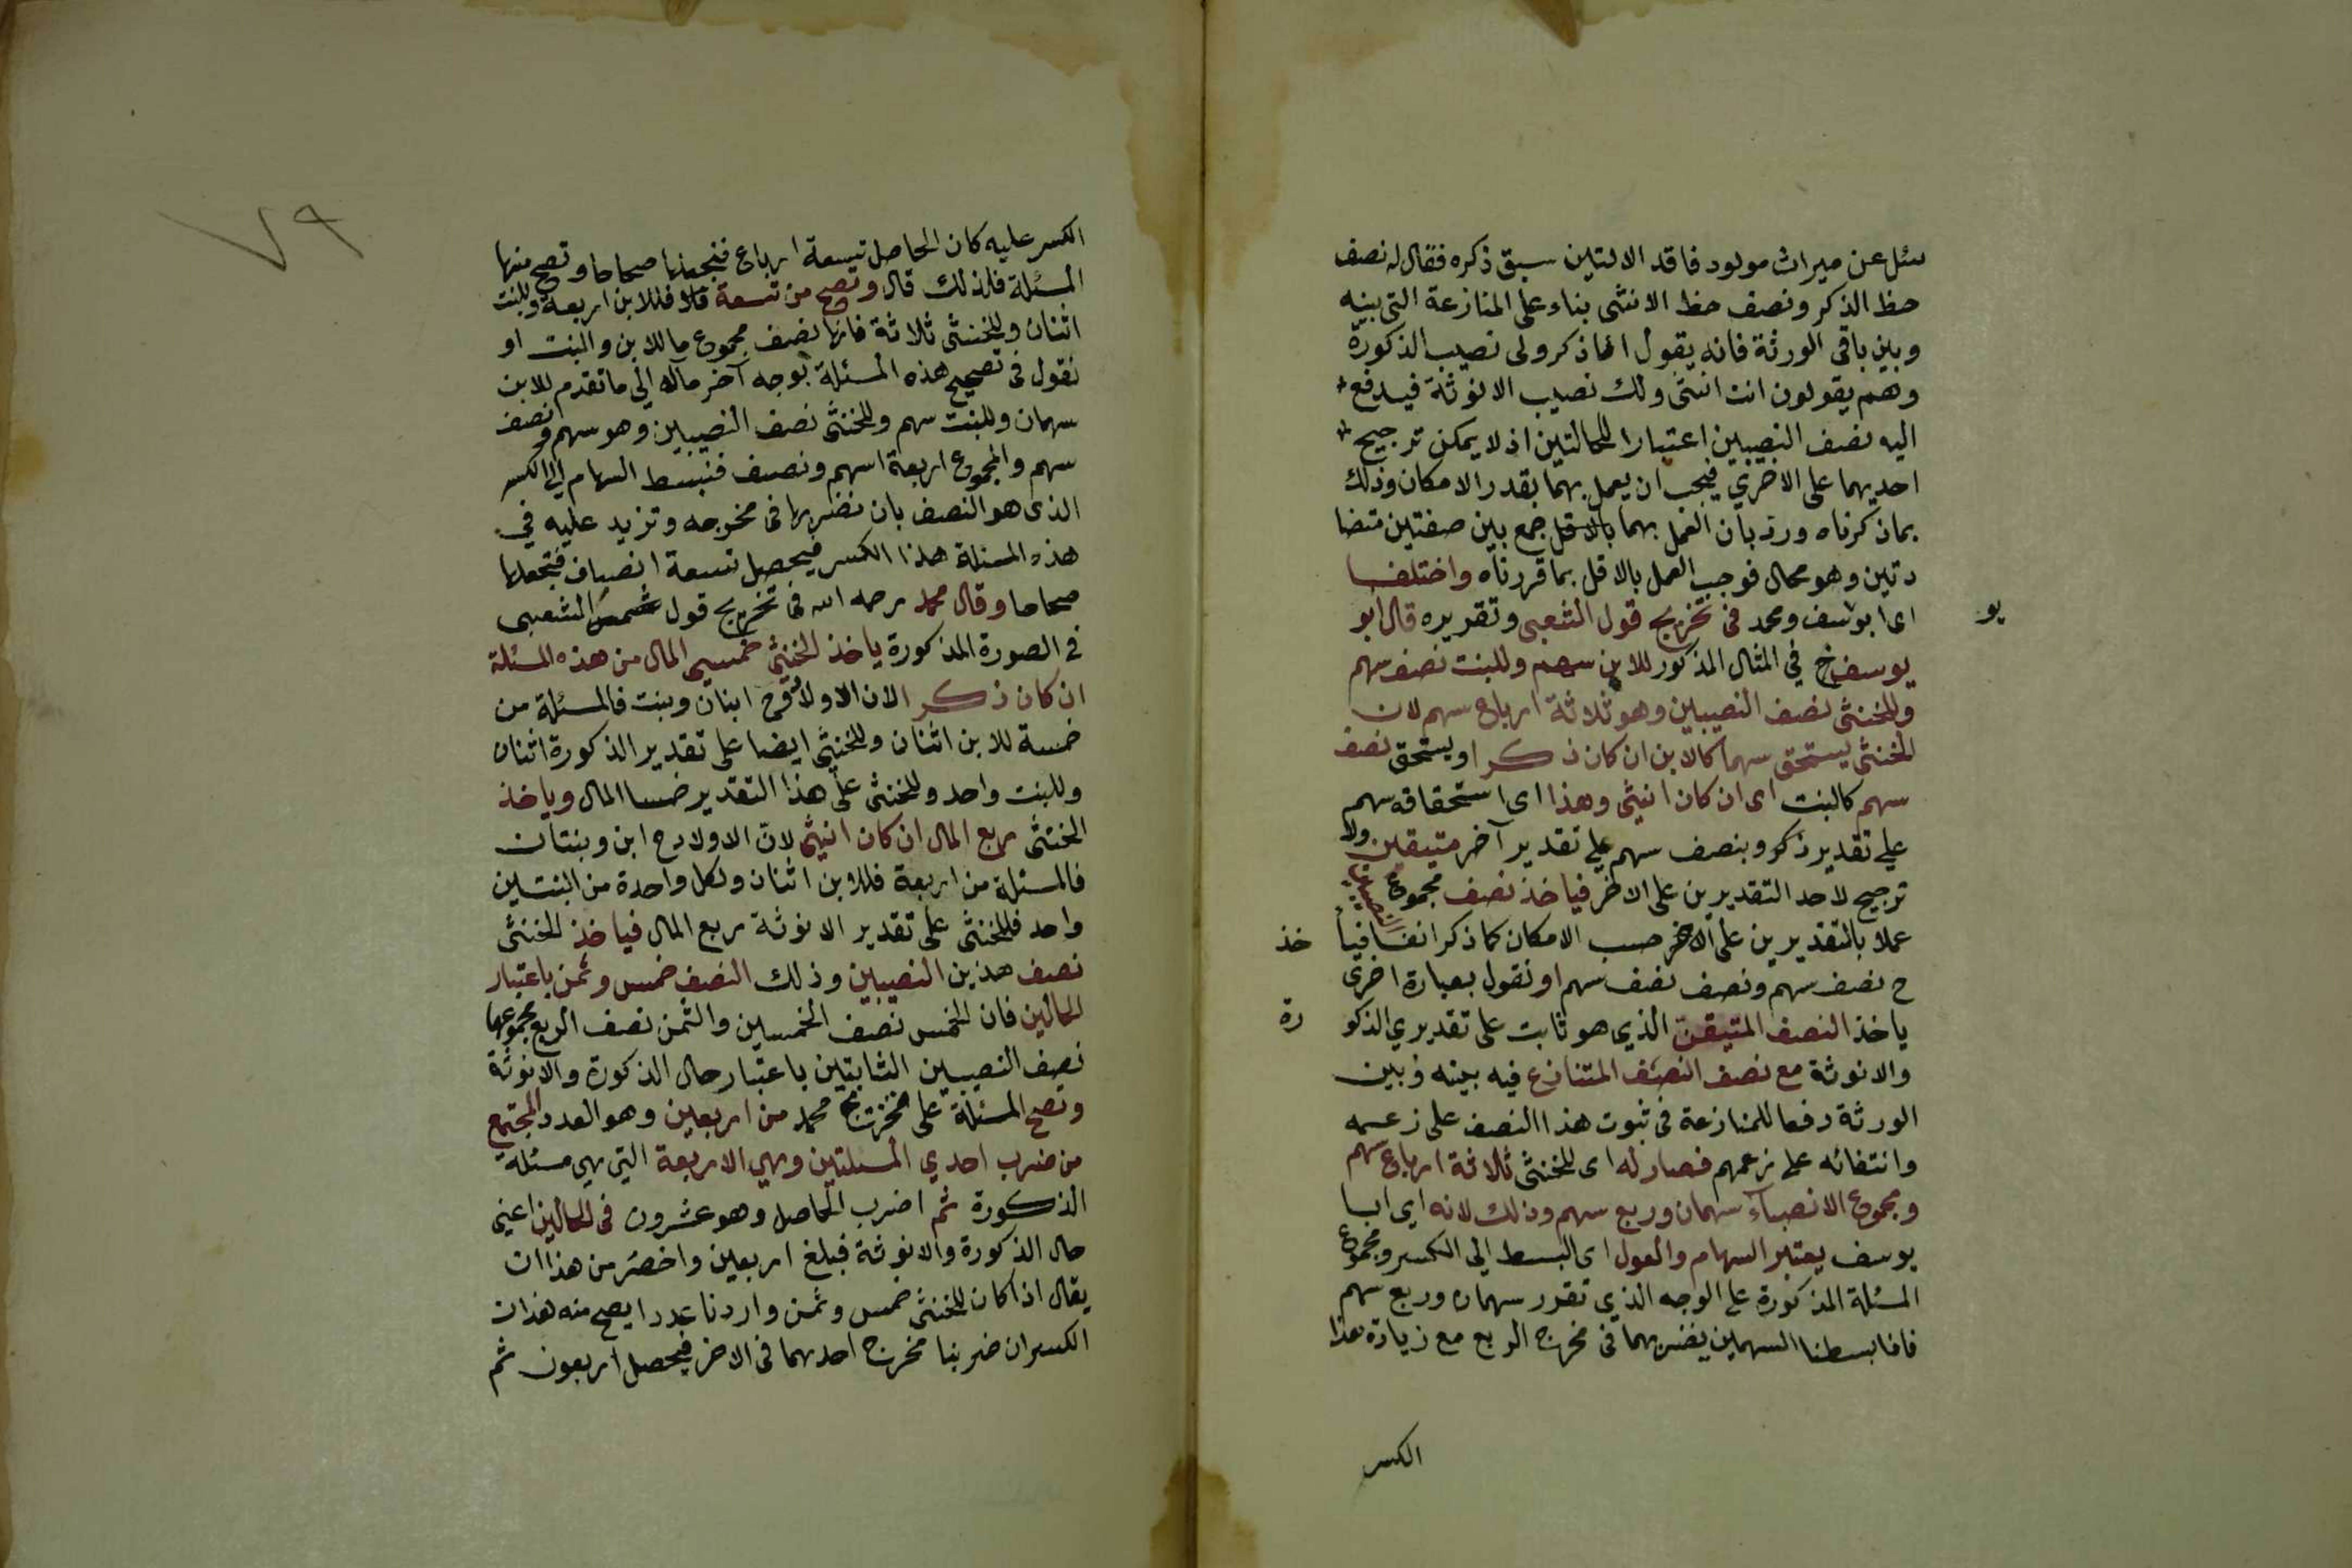 سئل عن ميراث مولود فاقد الالتين سبق ذكره فقال له نصف
حظ الذكر ونصف حظ الانثى بناء على المنازعة التى بينه
وبين باقى الورثة فانه يقول انا ذكر ولى نصيب الذكورة
وهم يقولون انت انثى ولك نصيب الانوثة فيدفع
اليه نصف النصيبين اعتبارا للحالتين اذ لا يمكن ترجيح
احديهما على الاخرى فيجب ان يعمل بهما بقدر الامكان وذلك
بما ذكرناه ورد بان العمل بهما بالاقل جمع بين صفتين متضا
دتين وهو محال فوجب العمل بالاقل بما قررناه واختلفا
اى ابو يوسف ومحمد فى تخريج قول الشعبى وتقريره قال ابو
يو
يوسف فى المثال المذكور للابن سهم وللبنت نصف سهم
وللخنثى نصف النصيبين وهو ثلاثة ارباع سهم لان
الخنثى يستحق سهما كالابن ان كان ذكرا ويستحق نصف
سهم كالبنت اى ان كان انثى وهذا اى استحقاقه سهم
على تقدير ذكر وبنصف سهم على تقدير آخر متيقن ولا
ترجيح لاحد التقديرين على الاخر فياخذ نصف مجموع النصيبين
عملا بالتقديرين على الاخر حسب الامكان كما ذكر انفا فيا خذ
ح نصف سهم ونصف نصف سهم او نقول بعبارة اخرى
ياخذ النصف المتيقن الذى هو ثابت على تقديرى الذكو رة
والانوثة مع نصف النصف المتنازع فيه بينه وبين
الورثة دفعا للمنازعة فى ثبوت هذا النصف على زعمه
وانتفائه على زعمهم فصار له اى للخنثى ثلاثة ارباع سهم
ومجموع الانصباء سهمان وربع سهم وذلك لانه اى ابا
يوسف يعتبر السهام والعول اى البسط الى الكسر ومجموع
المسئلة المذكورة على الوجه الذى تقرر سهمان وربع سهم
فاذا بسطنا السهمين بضربهما فى مخرج الربع مع زيادة هذا
الكسر
٧٩
الكسر عليه كان الحاصل تسعة ارباع فنجعلها صحاحا وتصح منها
المسئلة فلذلك قال وتصح من تسعة فللابن اربعة وللبنت
اثنان وللخنثى ثلاثة فانها نصف مجموع ما للابن والبنت او
نقول فى تصحيح هذه المسئلة بوجه آخر مآله الى ما تقدم للابن
سهمان وللبنت سهم وللخنثى نصف النصيبين وهو سهم ونصف
سهم والمجموع اربعة اسهم ونصف فنبسط السهام الى الكسر
الذى هو النصف بان نضربها فى مخرجه ونزيد عليه فى
هذه المسئلة هذا الكسر فيحصل تسعة انصاف فنجعلها
صحاحا وقال محمد رحمه الله فى تخريج قول الشعبى
فى الصورة المذكورة ياخذ الخنثى خمسى المال من هذه المسئلة
ان كان ذكرا لان الاولاد ح ابنان وبنت فالمسئلة من
خمسة للابن اثنان وللخنثى ايضا على تقدير الذكورة اثنان
وللبنت واحد وللخنثى على هذا التقدير خمسا المال وياخذ
الخنثى ربع المال ان كان انثى لان الاولاد ح ابن وبنتان
فالمسئلة من اربعة فللابن اثنان ولكل واحدة من البنتين
واحد فللخنثى على تقدير الانوثة ربع المال فياخذ الخنثى
نصف هذين النصيبين وذلك النصف خمس وثمن باعتبار
الحالين فان الخمس نصف الخمسين والثمن نصف الربع مجموعهما
نصف النصيبين الثابتين باعتبار حال الذكورة والانوثة
وتصح المسئلة على تخريج محمد من اربعين وهو العدد المجتمع
من ضرب احدى المسئلتين وهى الاربعة التى هى مسئلة
الذكورة ثم اضرب الحاصل وهو عشرون فى الحالين اعنى
حال الذكورة والانوثة فبلغ اربعين واخصر من هذا ان
يقال اذا كان للخنثى خمس وثمن واردنا عددا يصح منه هذان
الكسران ضربنا مخرج احدهما فى الاخر فيحصل اربعون ثم